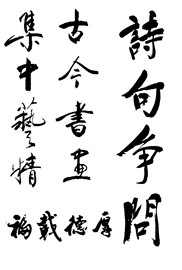 詩句争問
古今書畫
集中藝精
厚德戴福